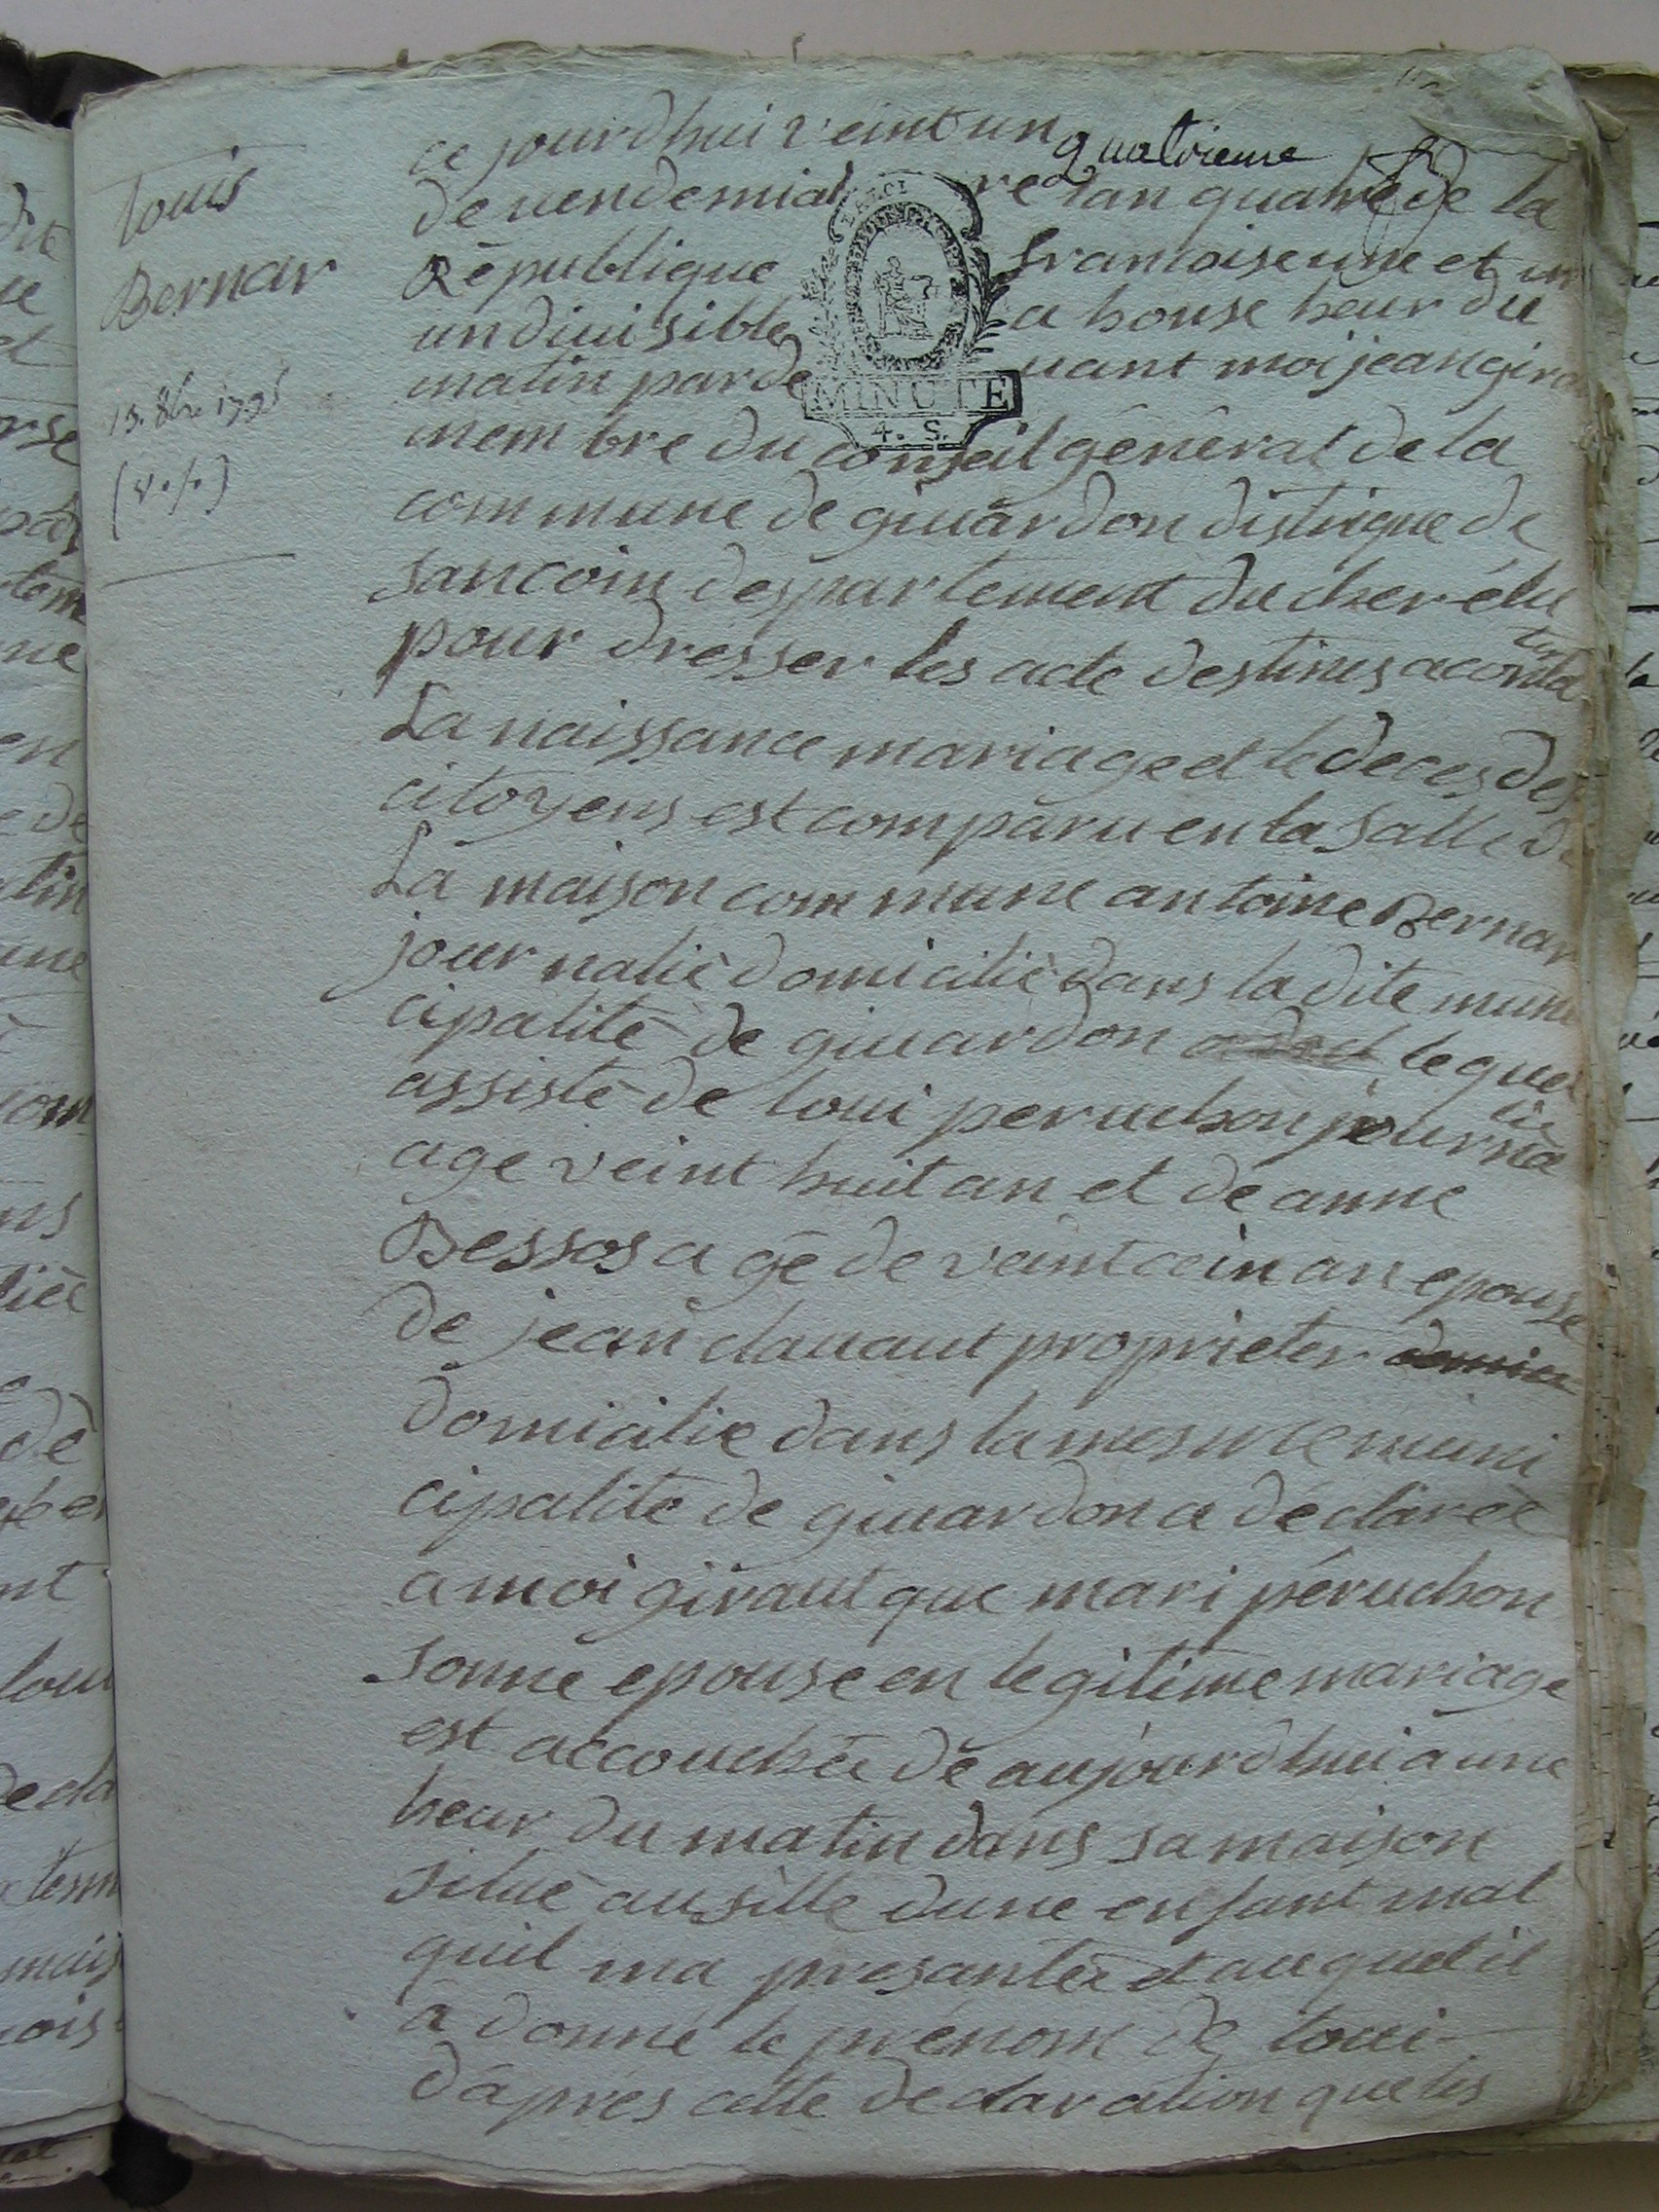 Louis
Bernar
13. 8bre 1795
ce jourdhui veint un
quatrieme
de vendemiai re lan quatre de la
République francoise une et in
undiuisible a honse heur du
matin parde uant moi jean gira
MINUTE
4. S.
membre du conseil général de la
commune de giuardon distrique de
sancoin despartement du cher élu
pour dresser les acte destines a conta
ter
La naissance mariage et le deces des
citoyens est comparu en la salle de
La maison commune antoine Bernar
journaliè domicilié dans la dite muni
cipalité de giuardon le quel
assisté de loui peruchon journa
liè
age veint huit an et de anne
Bessos a gé de veint cin an epouse
de jean dauaut proprieter
domicilie dans la mesme muni
cipalité de giuardon a déclaréé
a moi giraut que mari péruchon
sonne epouse en legitime mariage
est accouchée dé aujourdhui a une
heur du matin dans sa maison
situé au sille dune enfant mal
quil ma presantéé et auquel il
a donné le prénom de loui
dapres cette declaration que les